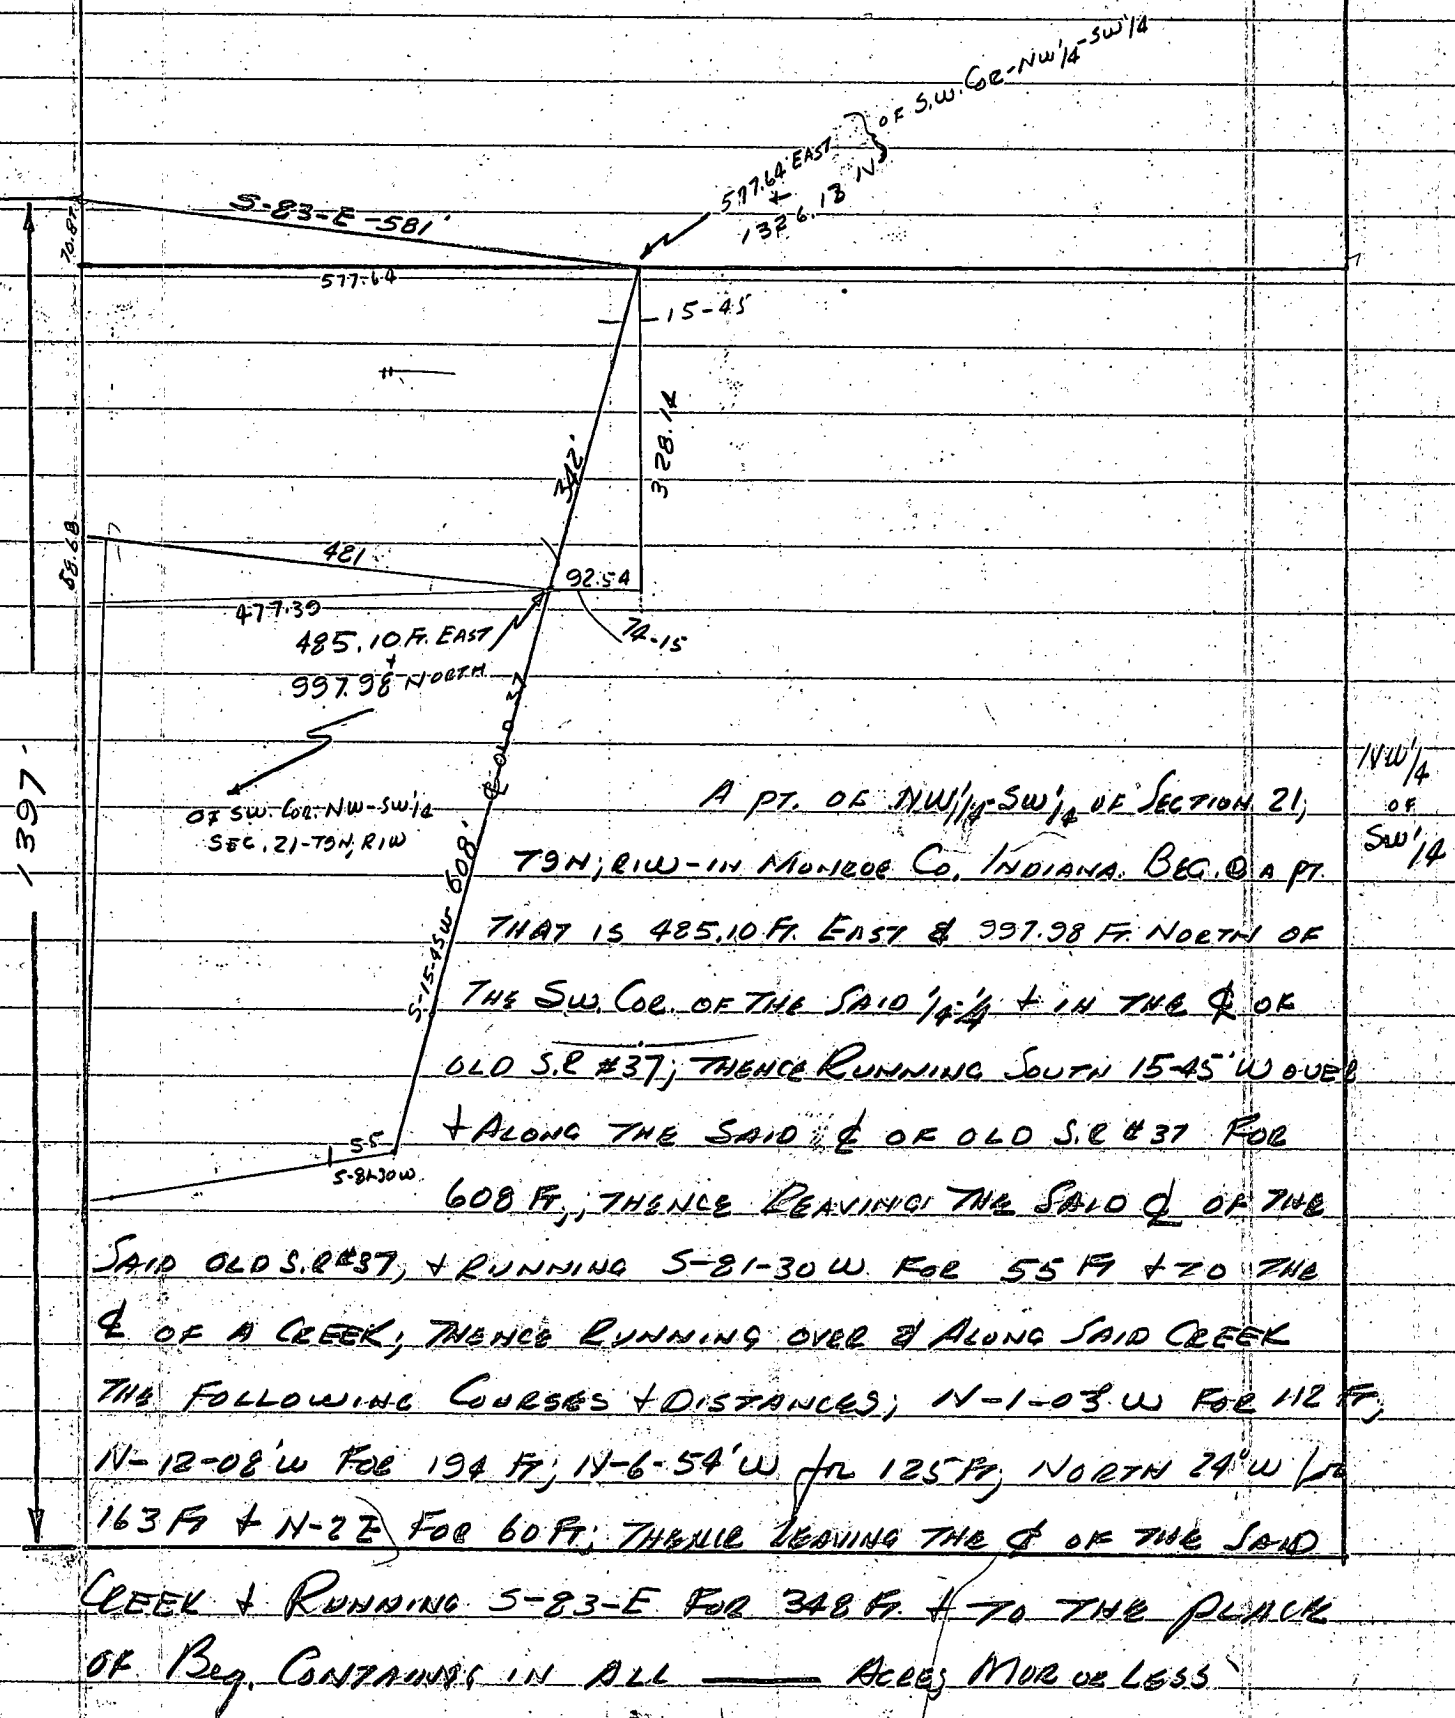 OF S.W. COR-NW1/4-SW1/4
577.64 EAST
+
1326.13 N
S-83-E-581'
70.87
577.64
15-45
342'
328.14
58.68
481
92.54
477.39
74-15
485.10 FT. EAST
+
997.98 NORTH
OF SW. COR. NW-SW1/4
SEC. 21-T9N, R1W
1397'
S-15-45W-608' ℄ OLD 37
55
S-81-30W
NW1/4
OF
SW1/4
A PT. OF NW1/4-SW1/4 OF SECTION 21,
T9N; R1W-IN MONROE CO. INDIANA. BEG. @ A PT.
THAT IS 485.10 FT. EAST & 997.98 FT. NORTH OF
THE SW. COR. OF THE SAID 1/4-1/4 + IN THE ℄ OF
OLD S.R #37; THENCE RUNNING SOUTH 15-45'W OVER
+ ALONG THE SAID ℄ OF OLD S.R #37 FOR
608 FT,; THENCE LEAVING THE SAID ℄ OF THE
SAID OLD S.R #37, + RUNNING S-81-30 W FOR 55 FT + TO THE
℄ OF A CREEK; THENCE RUNNING OVER & ALONG SAID CREEK
THE FOLLOWING COURSES + DISTANCES; N-1-03 W FOR 112 FT,
N-12-08'W FOR 194 FT; N-6-54'W for 125 FT, NORTH 24°W for
163 FT + N-2 E FOR 60 FT; THENCE LEAVING THE ℄ OF THE SAID
CREEK + RUNNING S-83-E FOR 348 FT. + TO THE PLACE
OF Beg. CONTAINING IN ALL ——— ACRES MOR OR LESS